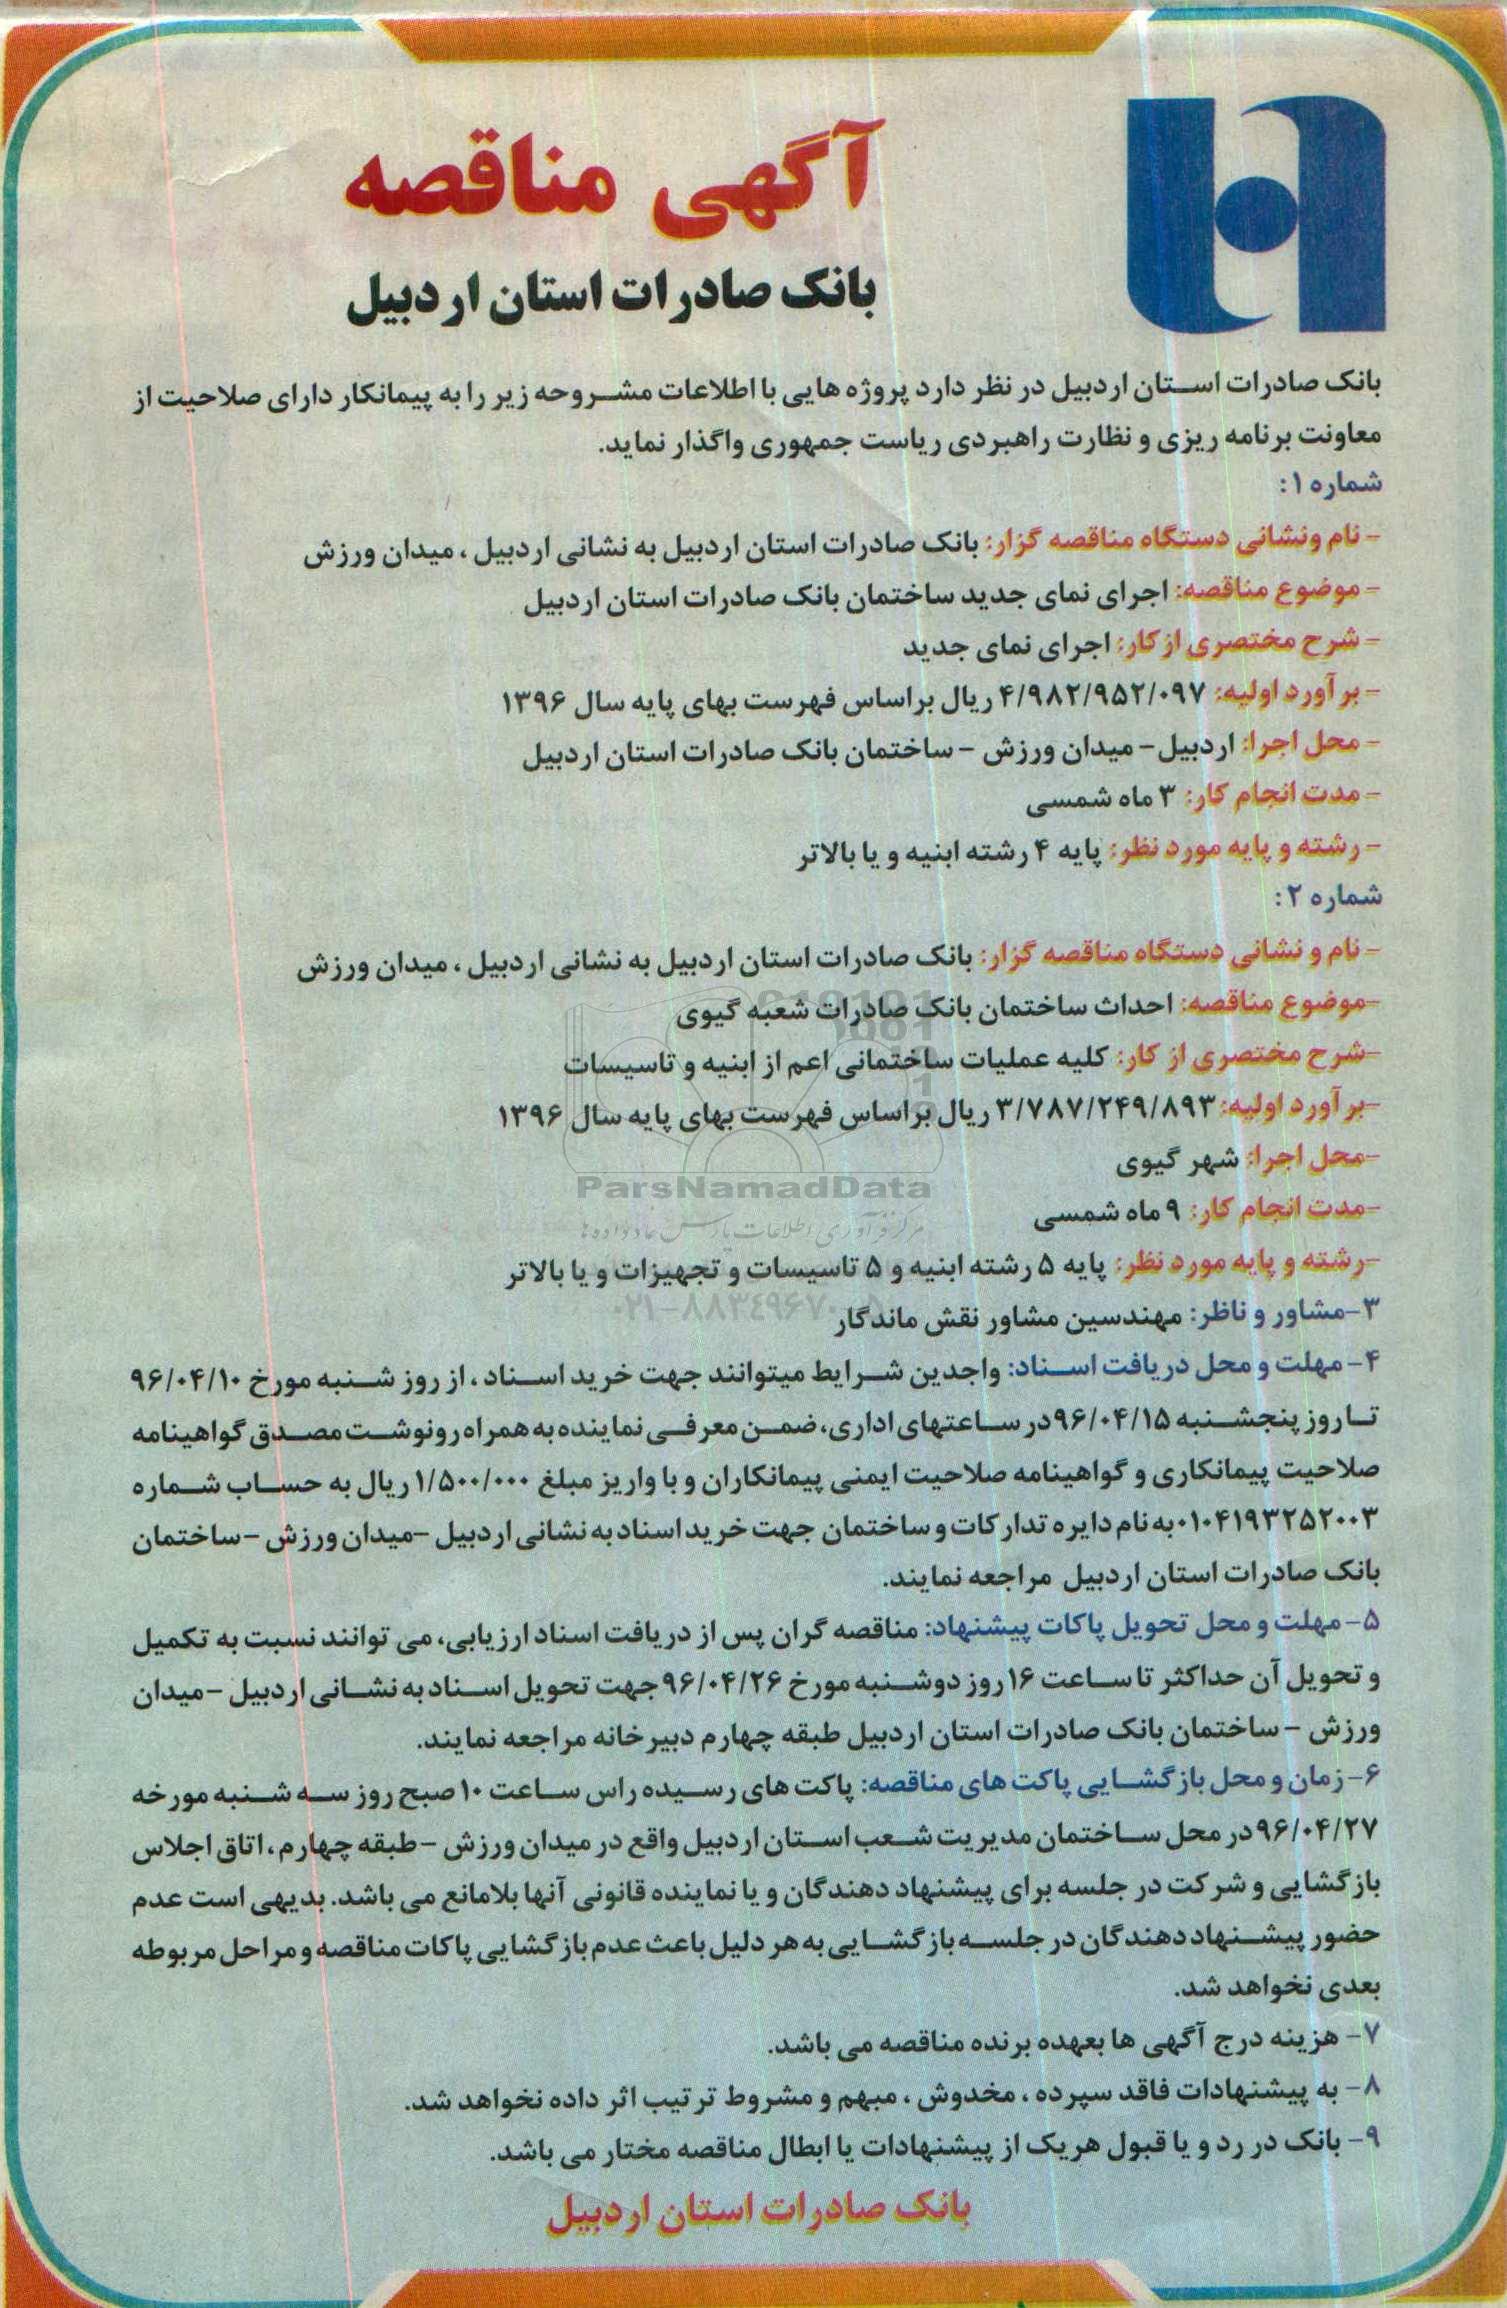 آگهی مناقصه
بانک صادرات استان اردبیل
بانک صادرات استان اردبیل در نظر دارد پروژه هایی با اطلاعات مشروحه زیر را به پیمانکار دارای صلاحیت از
معاونت برنامه ریزی و نظارت راهبردی ریاست جمهوری واگذار نماید.
شماره ۱:
- نام ونشانی دستگاه مناقصه گزار: بانک صادرات استان اردبیل به نشانی اردبیل ، میدان ورزش
- موضوع مناقصه: اجرای نمای جدید ساختمان بانک صادرات استان اردبیل
- شرح مختصری ازکار: اجرای نمای جدید
- برآورد اولیه: ۴/۹۸۲/۹۵۲/۰۹۷ ریال براساس فهرست بهای پایه سال ۱۳۹۶
- محل اجرا: اردبیل- میدان ورزش - ساختمان بانک صادرات استان اردبیل
- مدت انجام کار: ۳ ماه شمسی
- رشته و پایه مورد نظر: پایه ۴ رشته ابنیه و یا بالاتر
شماره ۲:
- نام و نشانی دستگاه مناقصه گزار: بانک صادرات استان اردبیل به نشانی اردبیل ، میدان ورزش
-موضوع مناقصه: احداث ساختمان بانک صادرات شعبه گیوی
-شرح مختصری از کار: کلیه عملیات ساختمانی اعم از ابنیه و تاسیسات
-برآورد اولیه: ۳/۷۸۷/۲۴۹/۸۹۳ ریال براساس فهرست بهای پایه سال ۱۳۹۶
-محل اجرا: شهر گیوی
ParsNamadData
-مدت انجام کار: ۹ ماه شمسی
مرکز فرآوری اطلاعات پارس نماد داده ها
-رشته و پایه مورد نظر: پایه ۵ رشته ابنیه و ۵ تاسیسات و تجهیزات و یا بالاتر
۰۲۱-۸۸۳۴۹۶۷۰-۵
۳-مشاور و ناظر: مهندسین مشاور نقش ماندگار
۴- مهلت و محل دریافت اسناد: واجدین شرایط میتوانند جهت خرید اسناد ، از روز شنبه مورخ ۹۶/۰۴/۱۰
تا روز پنجشنبه ۹۶/۰۴/۱۵در ساعتهای اداری، ضمن معرفی نماینده به همراه رونوشت مصدق گواهینامه
صلاحیت پیمانکاری و گواهینامه صلاحیت ایمنی پیمانکاران و با واریز مبلغ ۱/۵۰۰/۰۰۰ ریال به حساب شماره
۰۱۰۴۱۹۳۲۵۲۰۰۳به نام دایره تدارکات و ساختمان جهت خرید اسناد به نشانی اردبیل -میدان ورزش -ساختمان
بانک صادرات استان اردبیل مراجعه نمایند.
۵- مهلت و محل تحویل پاکات پیشنهاد: مناقصه گران پس از دریافت اسناد ارزیابی، می توانند نسبت به تکمیل
و تحویل آن حداکثر تا ساعت ۱۶ روز دوشنبه مورخ ۹۶/۰۴/۲۶ جهت تحویل اسناد به نشانی اردبیل -میدان
ورزش - ساختمان بانک صادرات استان اردبیل طبقه چهارم دبیرخانه مراجعه نمایند.
۶- زمان و محل بازگشایی پاکت های مناقصه: پاکت های رسیده راس ساعت ۱۰ صبح روز سه شنبه مورخه
۹۶/۰۴/۲۷در محل ساختمان مدیریت شعب استان اردبیل واقع در میدان ورزش -طبقه چهارم، اتاق اجلاس
بازگشایی و شرکت در جلسه برای پیشنهاد دهندگان و یا نماینده قانونی آنها بلامانع می باشد. بدیهی است عدم
حضور پیشنهاد دهندگان در جلسه بازگشایی به هر دلیل باعث عدم بازگشایی پاکات مناقصه و مراحل مربوطه
بعدی نخواهد شد.
۷- هزینه درج آگهی ها بعهده برنده مناقصه می باشد.
۸- به پیشنهادات فاقد سپرده ، مخدوش ، مبهم و مشروط ترتیب اثر داده نخواهد شد.
۹- بانک در رد و یا قبول هریک از پیشنهادات یا ابطال مناقصه مختار می باشد.
بانک صادرات استان اردبیل